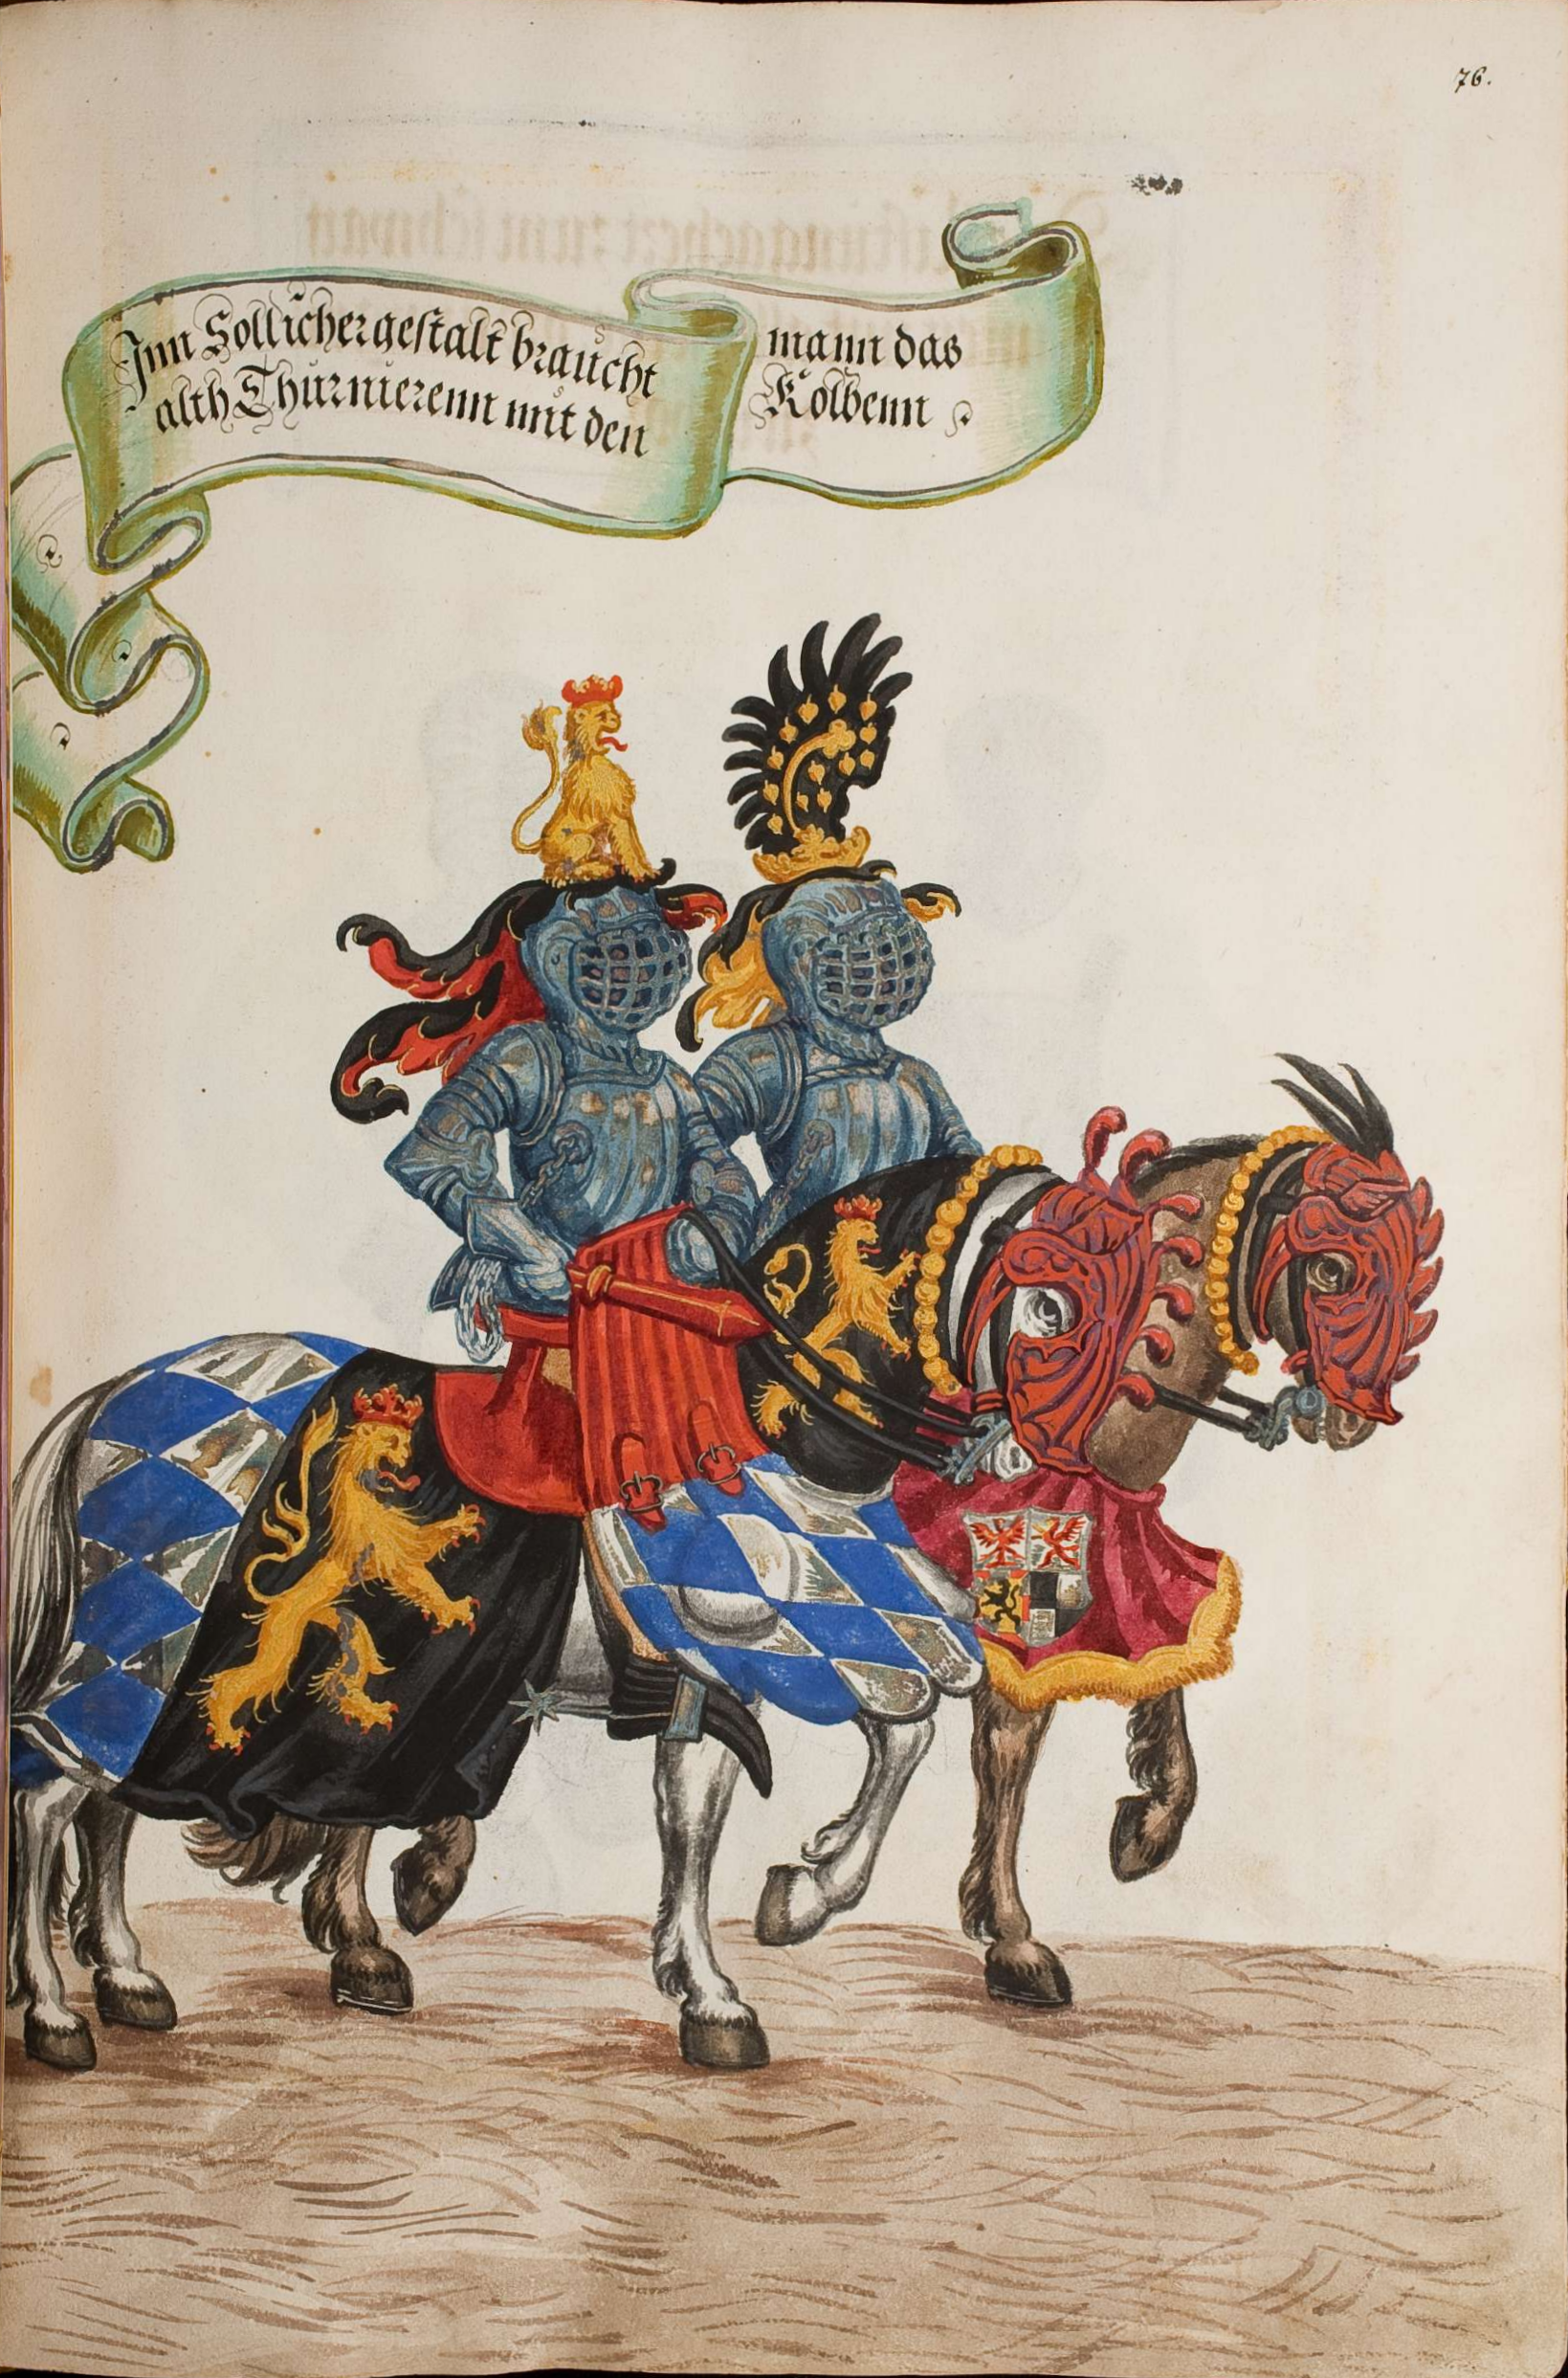 76.
Jnn Sollicher gestalt braucht mann das
alth Thurnierenn mit den Kolbenn